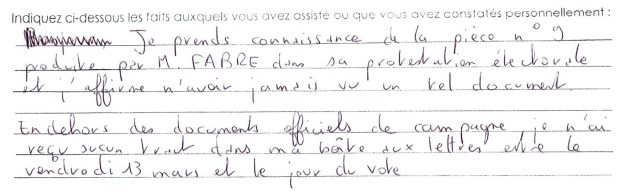 Indiquez ci-dessous les faits auxquels vous avez assisté ou que vous avez constatés personnellement :
Je prends connaissance de la pièce n° 9
produite par M. FABRE dans sa protestation électorale
et j'affirme n'avoir jamais vu un tel document.
En dehors des documents officiels de campagne, je n'ai
reçu aucun tract dans ma boîte aux lettres entre le
vendredi 13 mars et le jour du vote